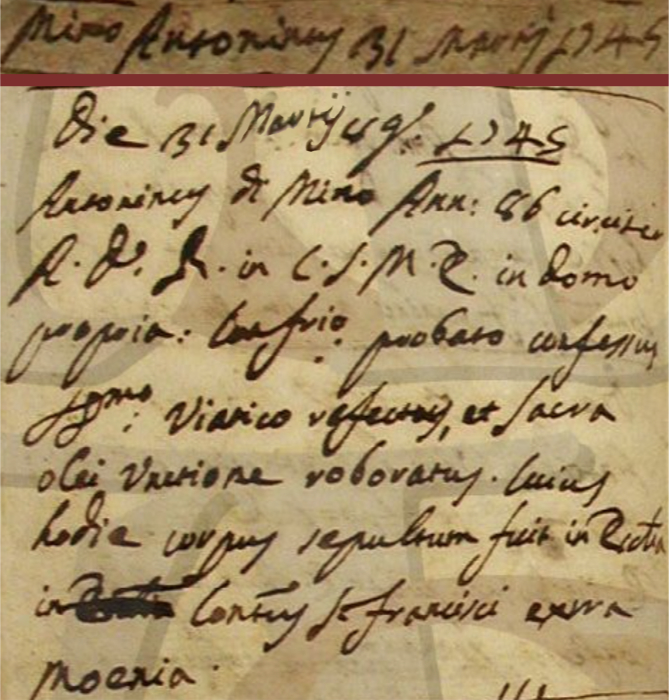 Mino Antoninus 31 Martij 1745
Die 31 Martij 1745
Antoninus di Mino Ann: 86 circiter
A. D. R. in C. S. M. E. in domo
propria: Confrio. probato confessus
SSmo: Viatico refectus, et Sacra
olei Unctione roboratus. Cuius
hodie corpus sepultum fuit in Eccla
in Contus Sti francisci extra
moenia.